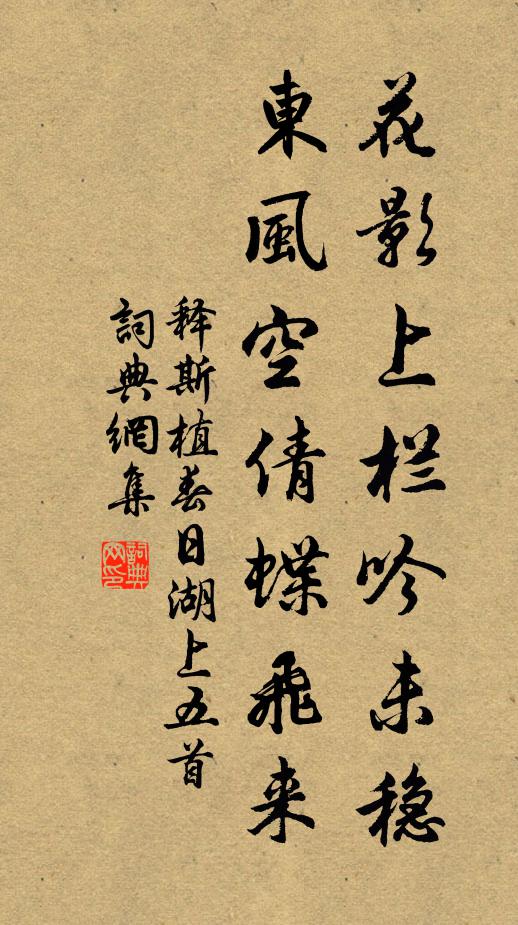 花影上栏吟未稳
東風空倩蝶飛来
释斯植春日湖上五首
詞典網集
詞典網印